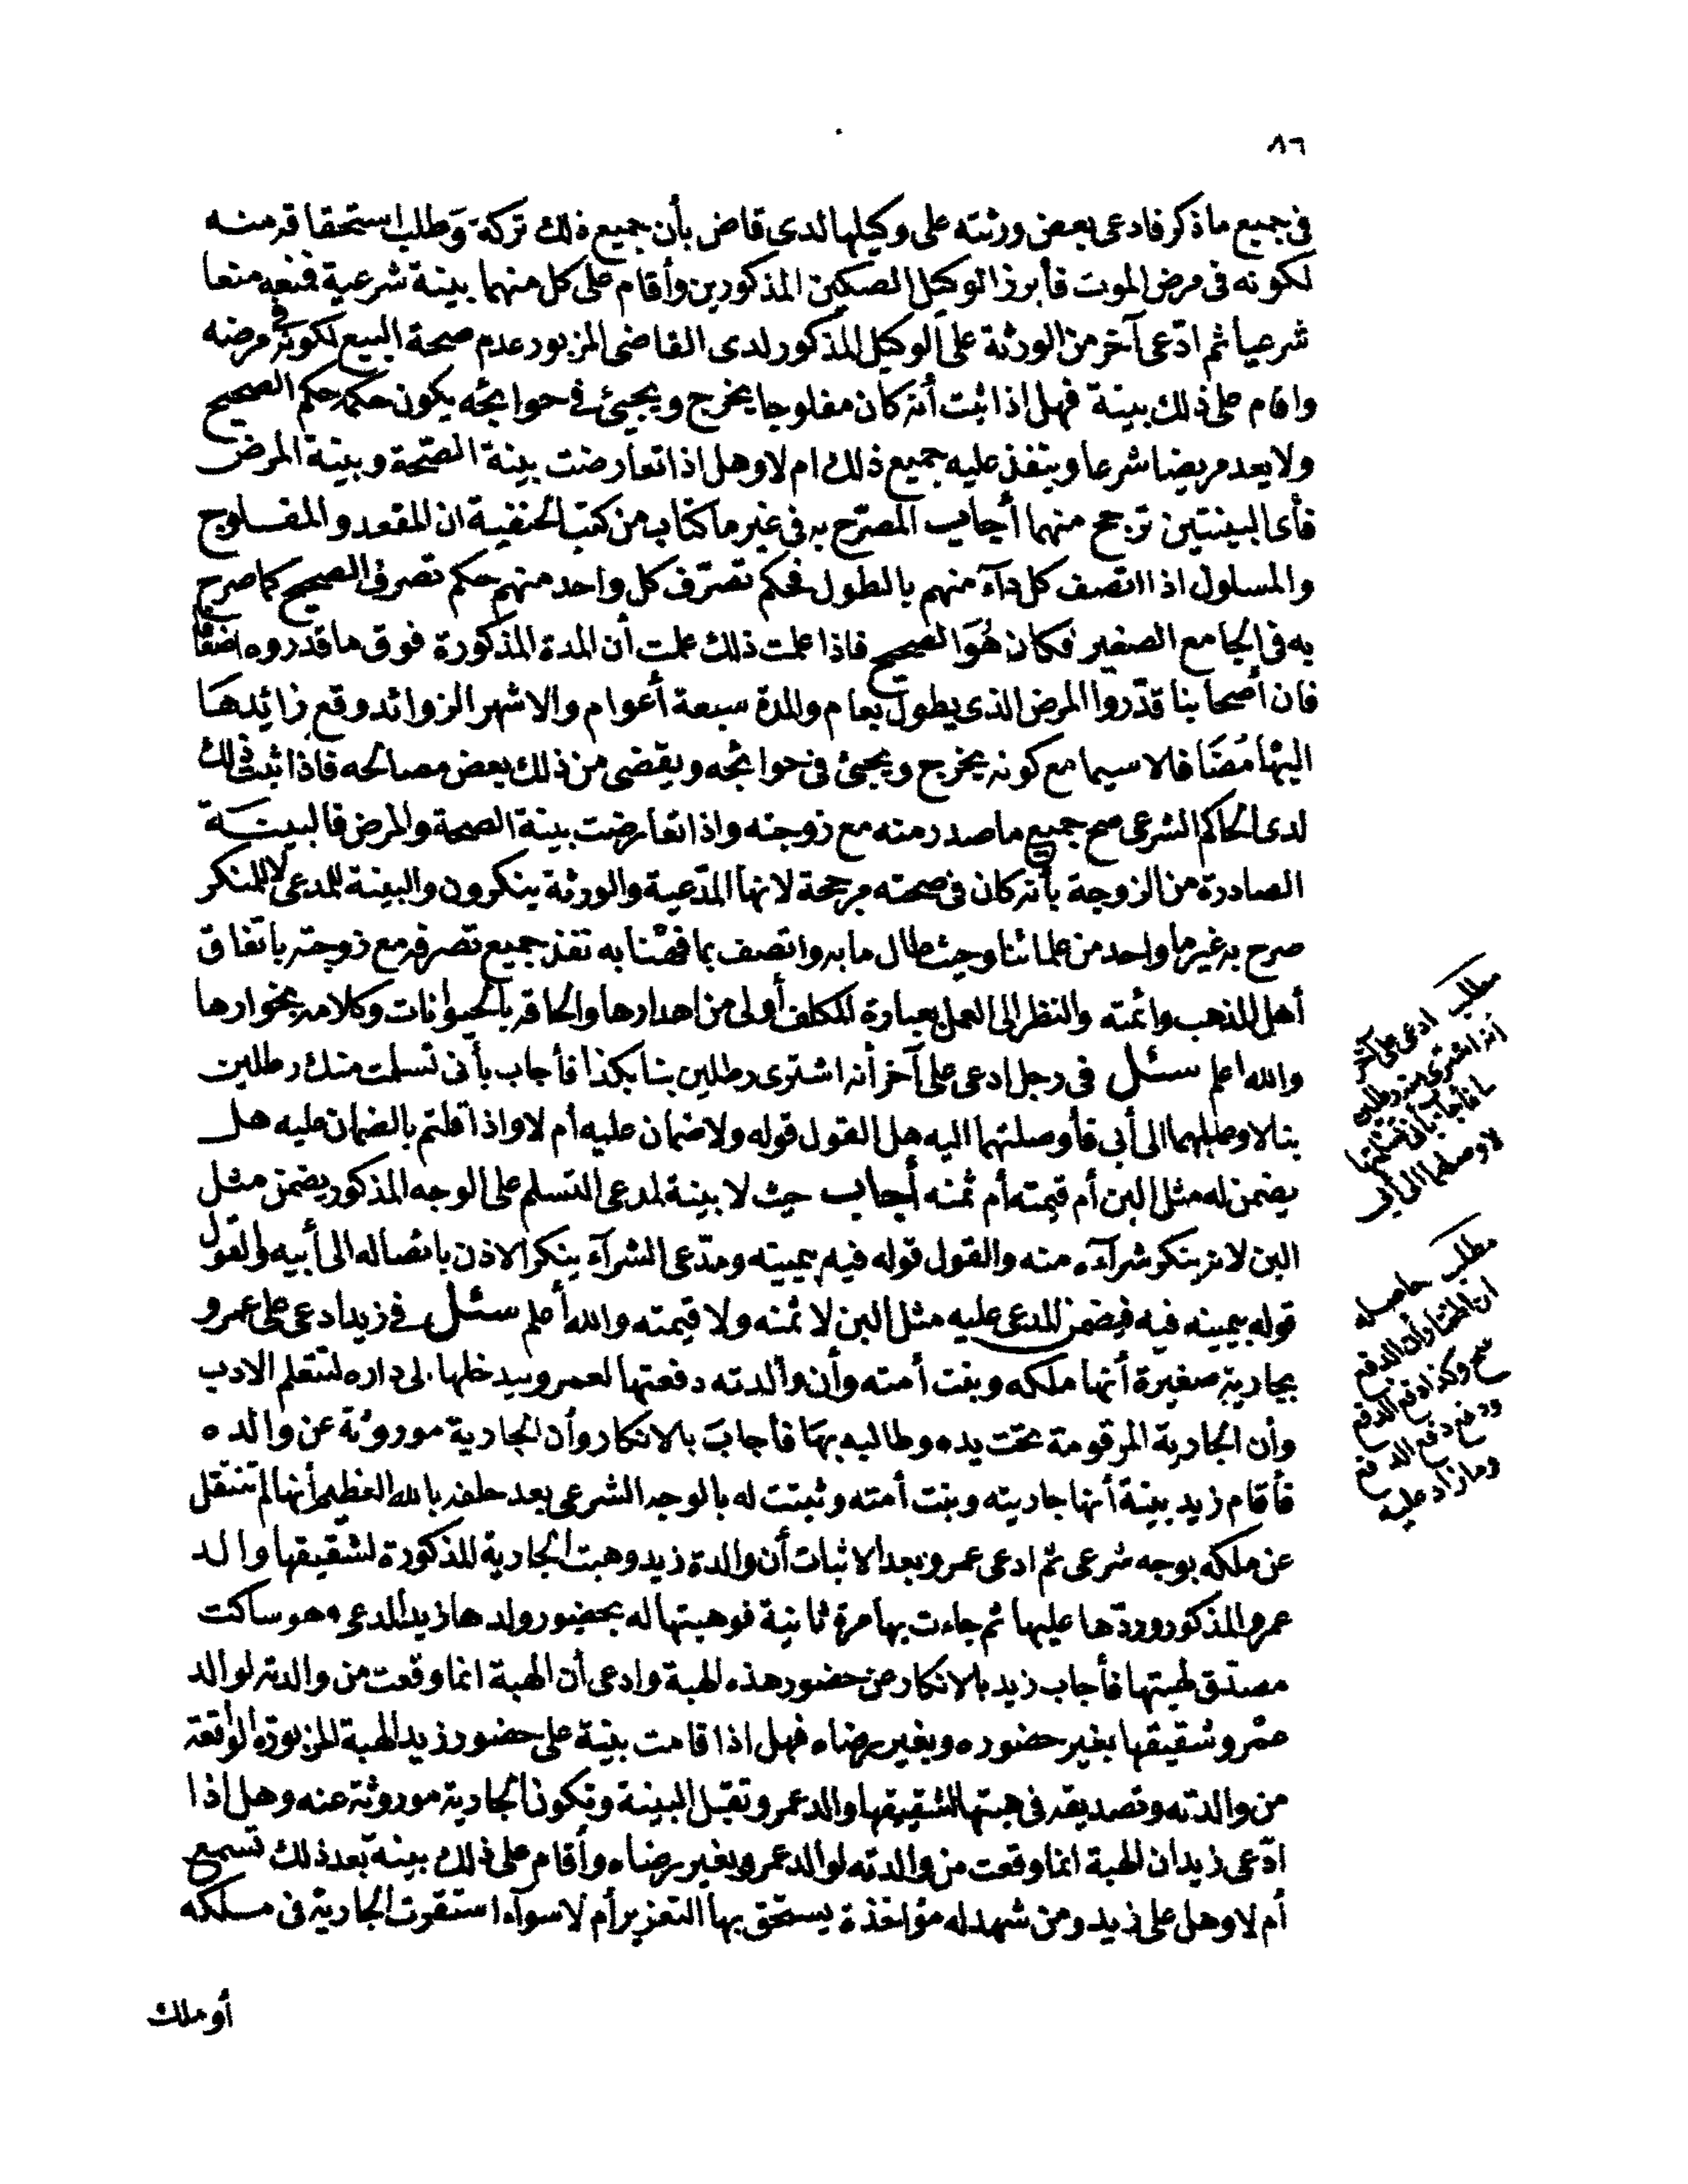 ٨٦
في جميع ما ذكر فادعى بعض ورثته على وكيلها لدى قاض بأن جميع ذلك تركة وطلب استحقاقه منه
لكونه في مرض الموت فأبرز الوكيل الصكين المذكورين وأقام على كل منهما بينة شرعية فمنعه منعا
شرعيا ثم ادّعى آخر من الورثة على الوكيل المذكور لدى القاضي المزبور عدم صحة البيع لكونه في مرضه
واقام على ذلك بينة فهل اذا ثبت أنه كان مفلوجا يخرج ويجيئ في حوائجه يكون حكمه حكم الصحيح
ولا يعد مريضا شرعا وينفذ عليه جميع ذلك ام لا وهل اذا تعارضت بينة الصّحة وبينة المرض
فأى البينتين ترجح منهما أجاب المصرّح به في غير ما كتاب من كتب الحنفية ان المقعد والمفلوج
والمسلول اذا اتصف كل دآء منهم بالطول فحكم تصرّف كل واحد منهم حكم تصرف الصحيح كما صرح
به في الجامع الصغير فكان هُوَ الصحيح فاذا علمت ذلك علمت أن المدة المذكورة فوق ما قدروه
فان أصحابنا قدّروا المرض الذى يطول بعام والمدة سبعة أعوام والاشهر الزوائد وقع زائِدهَا
اليهَا مُضَافا لا سيما مع كونه يخرج ويجيئ في حوائجه ويقضى من ذلك بعض مصالحه فاذا ثبت ذلك
لدى الحاكم الشرعى صح جميع ما صدر منه مع زوجته واذا تعارضت بينة الصحة والمرض فالبينة
الصادرة من الزوجة بأنه كان في صحته مرجحة لانها المدّعية والورثة ينكرون والبينة للمدعى لا للمنكر
صرح به غير ما واحد من علمائنا وحيث طال ما به واتصف بما فهنا به نفذ جميع تصرفه مع زوجته باتفاق
أهل المذهب وائمته والنظر الى العمل بعبارة المكلف أولى من اهدارها والحاقه بالحيوانات وكلامه بخوارها
والله اعلم سئل في رجل ادعى على آخر أنه اشترى رطلين بنا بكذا فأجاب بأنى تسلمت منك رطلين
بنا لاوصلهما الى أبى فأوصلتهما اليه هل القول قوله ولا ضمان عليه أم لا واذا قلتم بالضمان عليه هل
يضمن له مثل البن أم قيمته أم ثمنه أجاب حيث لا بينة لمدعى التسلم على الوجه المذكور يضمن مثل
البن لانه ينكر شرآءه منه والقول قوله فيه بيمينه ومدّعى الشرآء ينكر الاذن بايصاله الى أبيه والقول
قوله بيمينه فيه فيضمن المدعى عليه مثل البن لا ثمنه ولا قيمته والله أعلم سئل في زيد ادعى على عمرو
بجارية صغيرة أنها ملكه وبنت أمته وأن والدته دفعتها لعمرو ليدخلها الى داره لتتعلم الادب
وأن الجارية المرقومة تحت يده وطالبه بهَا فأجابَ بالانكار وأن الجارية موروثة عن والده
فأقام زيد بينة أنها جاريته وبنت أمته وثبتت له بالوجه الشرعى بعد حلفه بالله العظيم أنها لم تنتقل
عن ملكه بوجه شرعى ثم ادعى عمرو بعد الاثبات أن والدة زيد وهبت الجارية المذكورة لشقيقها والد
عمرو المذكور وردّها عليها ثم جاءت بها مرة ثانية فوهبتها له بحضور ولدها زيد المدعى وهو ساكت
مصدّق لهبتها فأجاب زيد بالانكار عن حضور هذه الهبة وادعى أن الهبة انما وقعت من والدته لوالد
عمْرو شقيقها بغير حضوره وبغير رضاه فهل اذا قامت بينة على حضور زيد الهبة المزبورة الواقعة
من والدته وتصديقه في هبتها لشقيقها والد عمرو تقبل البينة وتكون الجارية موروثة عنه وهل اذا
ادّعى زيد ان الهبة انما وقعت من والدته لوالد عمرو بغير رضاه وأقام على ذلك بينة بعد ذلك تسمع
أم لا وهل على زيد ومن شهد له مؤاخذة يستحق بها التعزير أم لا سوآء استقرت الجارية في ملكه
أو ملك
مطلب ادعى على آخر
أنه اشترى منه رطلين
بنا فأجاب بأنى تسلمتها
لاوصلهما الى أبى
مطلب حاصله
ان المختار أن الدفع
صح وكذا دفع الدفع
ودفع دفع الدفع
وما زاد عليه